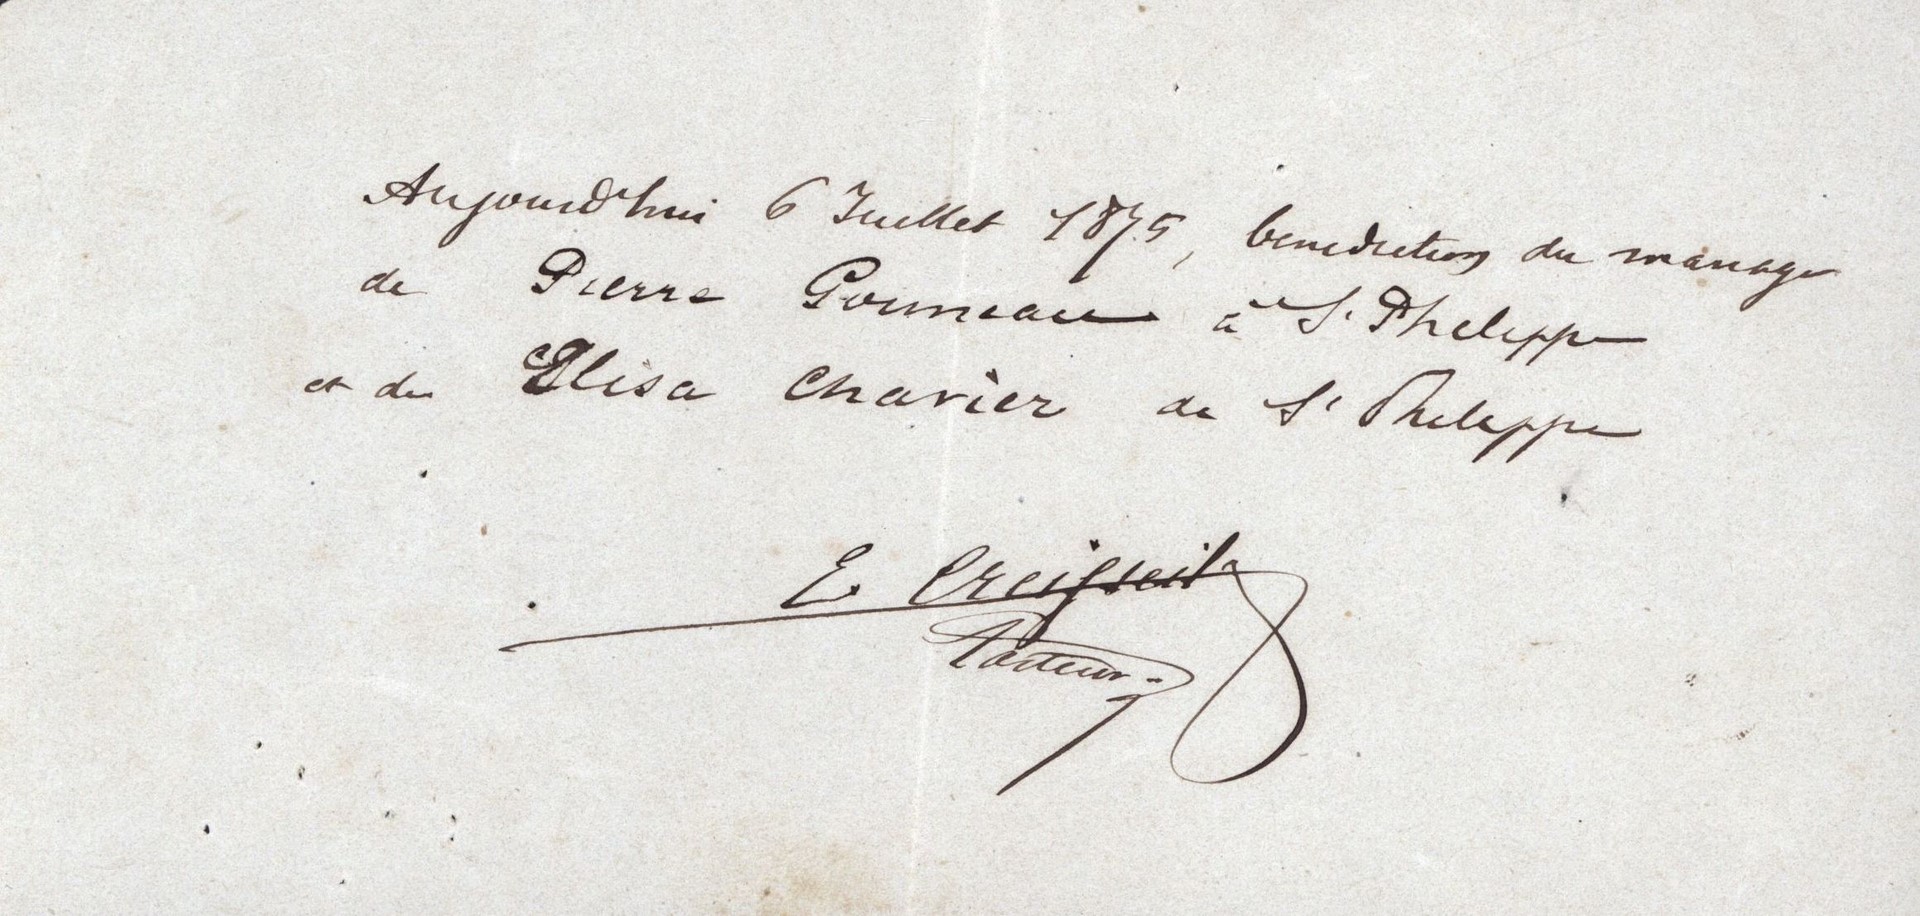 Aujourd'hui 6 Juillet 1875, benediction du mariage
de Pierre Goumeau à St Philippe
et de Elisa Charier de St Philippe
E Creisseil
Pasteur